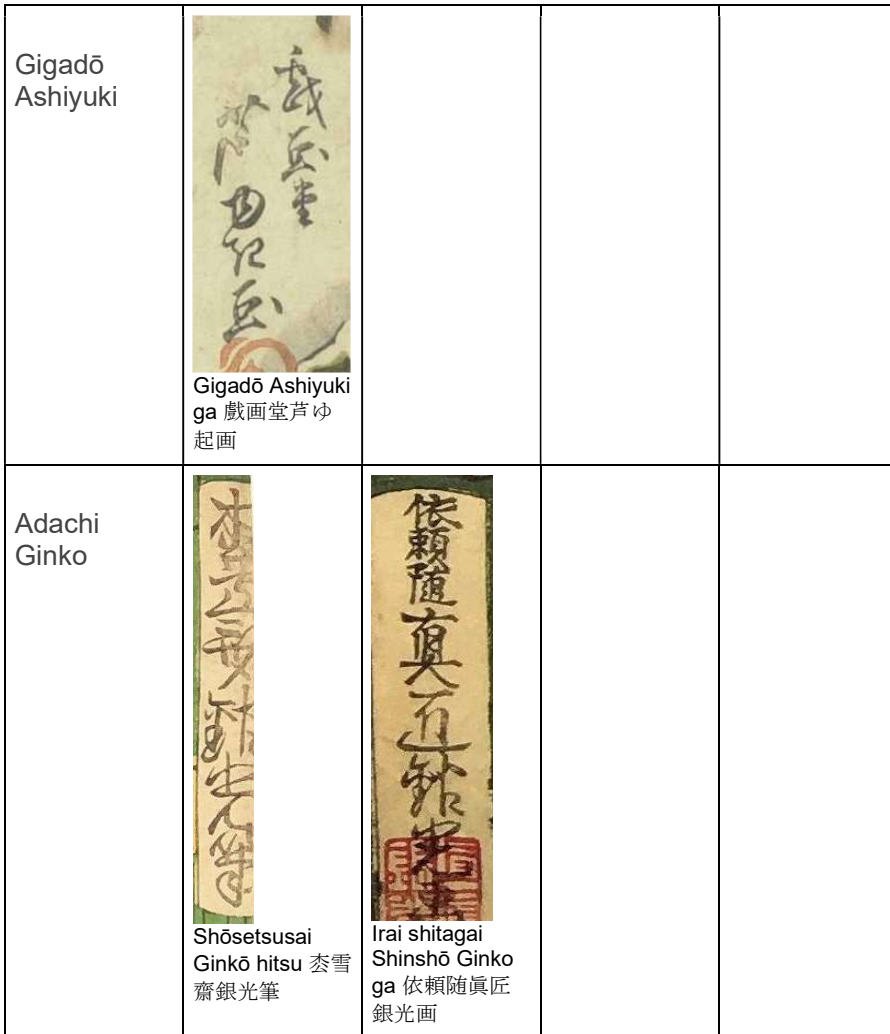 Gigadō
Ashiyuki
戯画堂
芦ゆ起画
Gigadō Ashiyuki
ga 戯画堂芦ゆ
起画
Adachi
Ginko
枩雪齋銀光筆
Shōsetsusai
Ginkō hitsu 枩雪
齋銀光筆
依頼随眞匠銀光画
Irai shitagai
Shinshō Ginko
ga 依頼随眞匠
銀光画